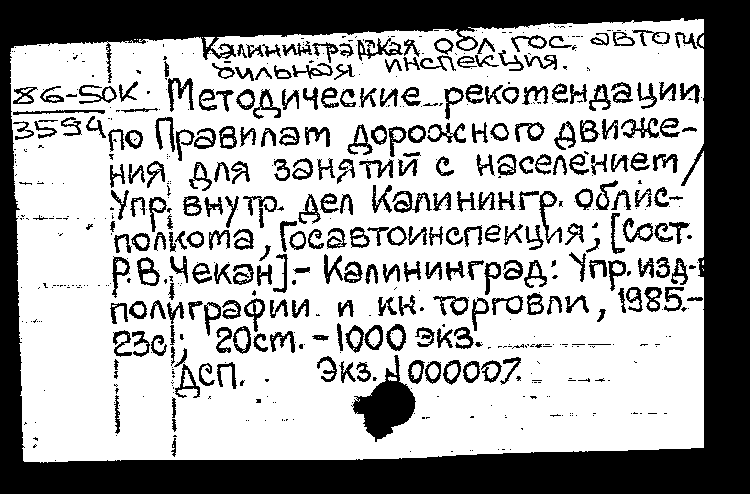 Калининградская обл. гос. автомо
бильная инспекция.
86-50К Методические рекомендации
3594 по Правилам дорожного движе-
ния для занятий с населением /
Упр. внутр. дел Калинингр. облис-
полкома, Госавтоинспекция; [Сост.
Р.В. Чекан]. - Калининград: Упр. изд-в
полиграфии и кн. торговли, 1985. -
23с.; 20см. - 1000 экз.
ДСП. Экз. N 000007.